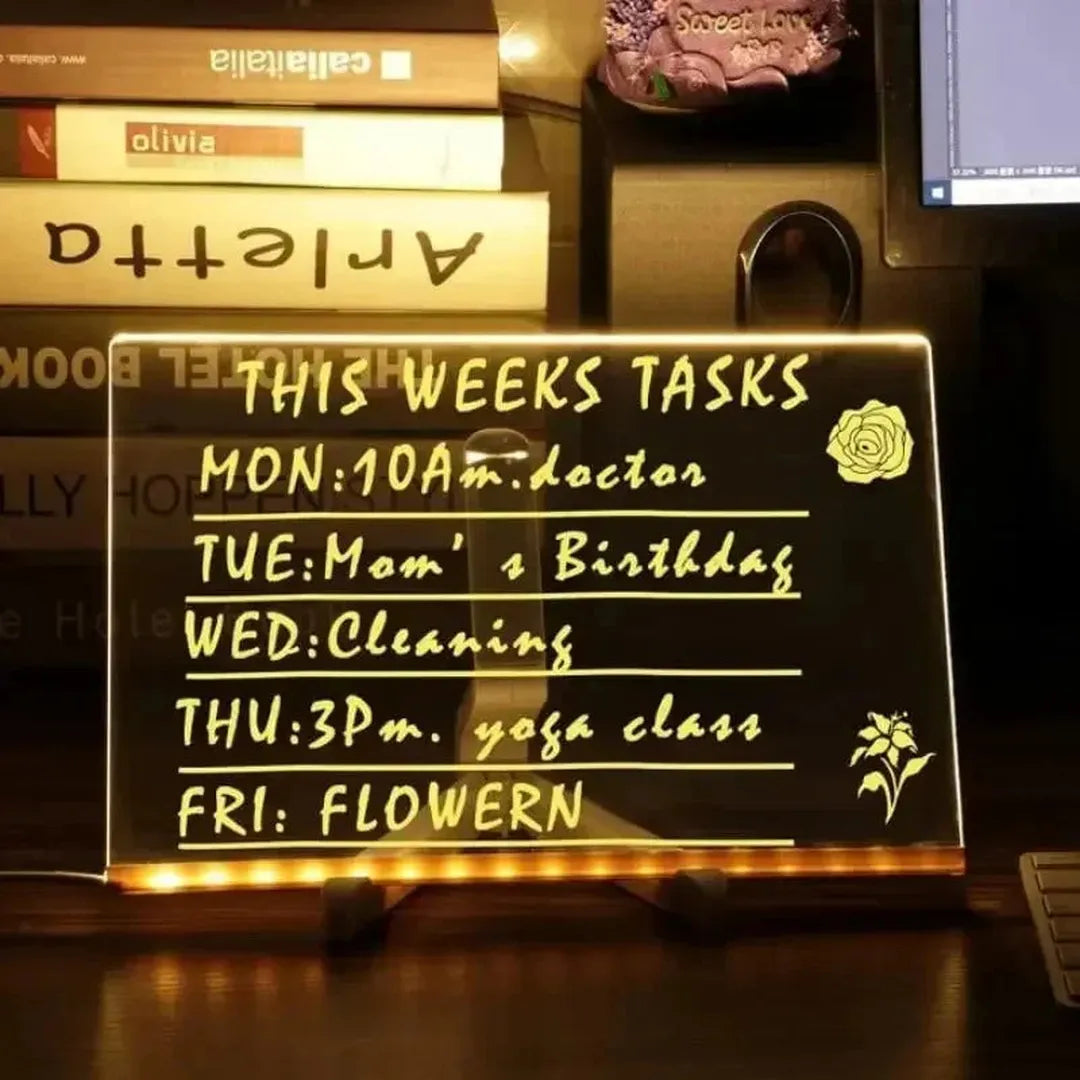 www.caliaitalia.
caliaitalia
olivia
Arletta
Sweet Love
THE HOTEL BOOK
THIS WEEKS TASKS
MON:10Am.doctor
TUE:Mom's Birthday
WED:Cleaning
THU:3Pm. yoga class
FRI: FLOWERN